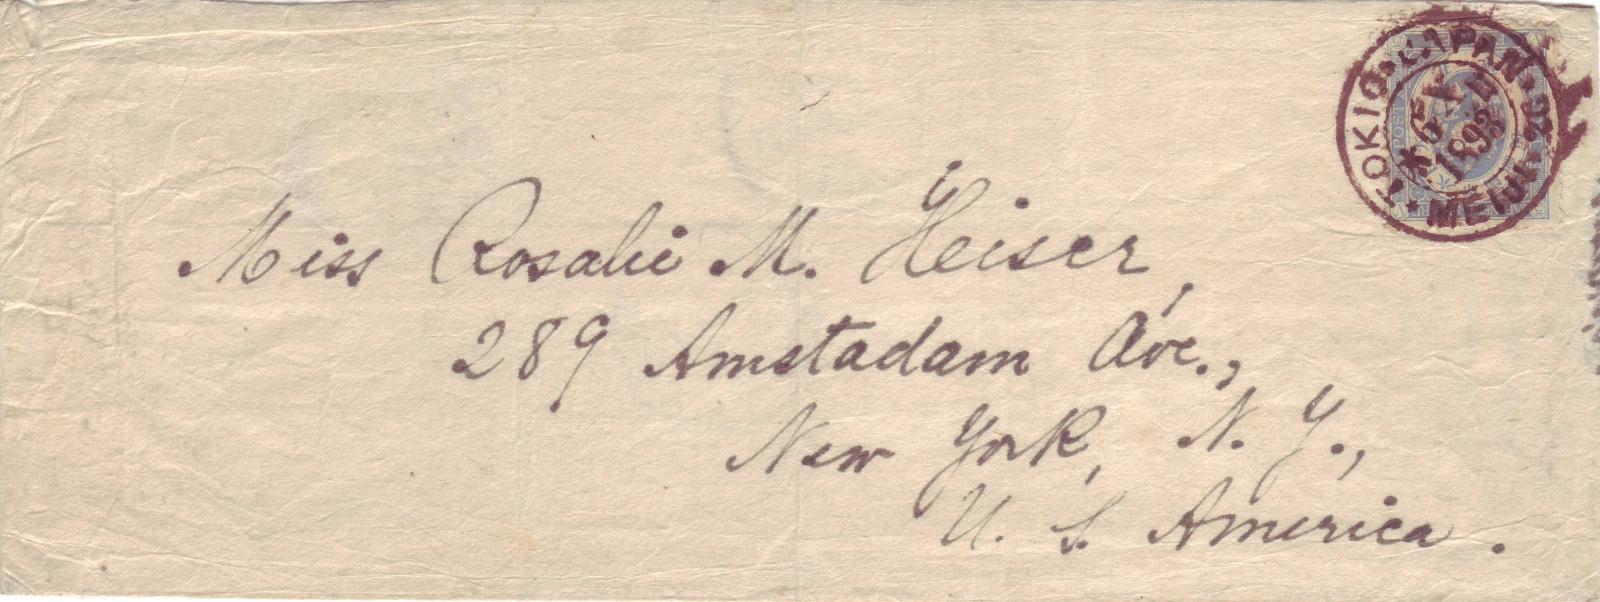 TOKIO · JAPAN · 26 MEIJI
5 X
1893
POST
Miss Rosalie M. Heiser,
289 Amstadam Ave.,
New York, N. Y.,
U. S. America.